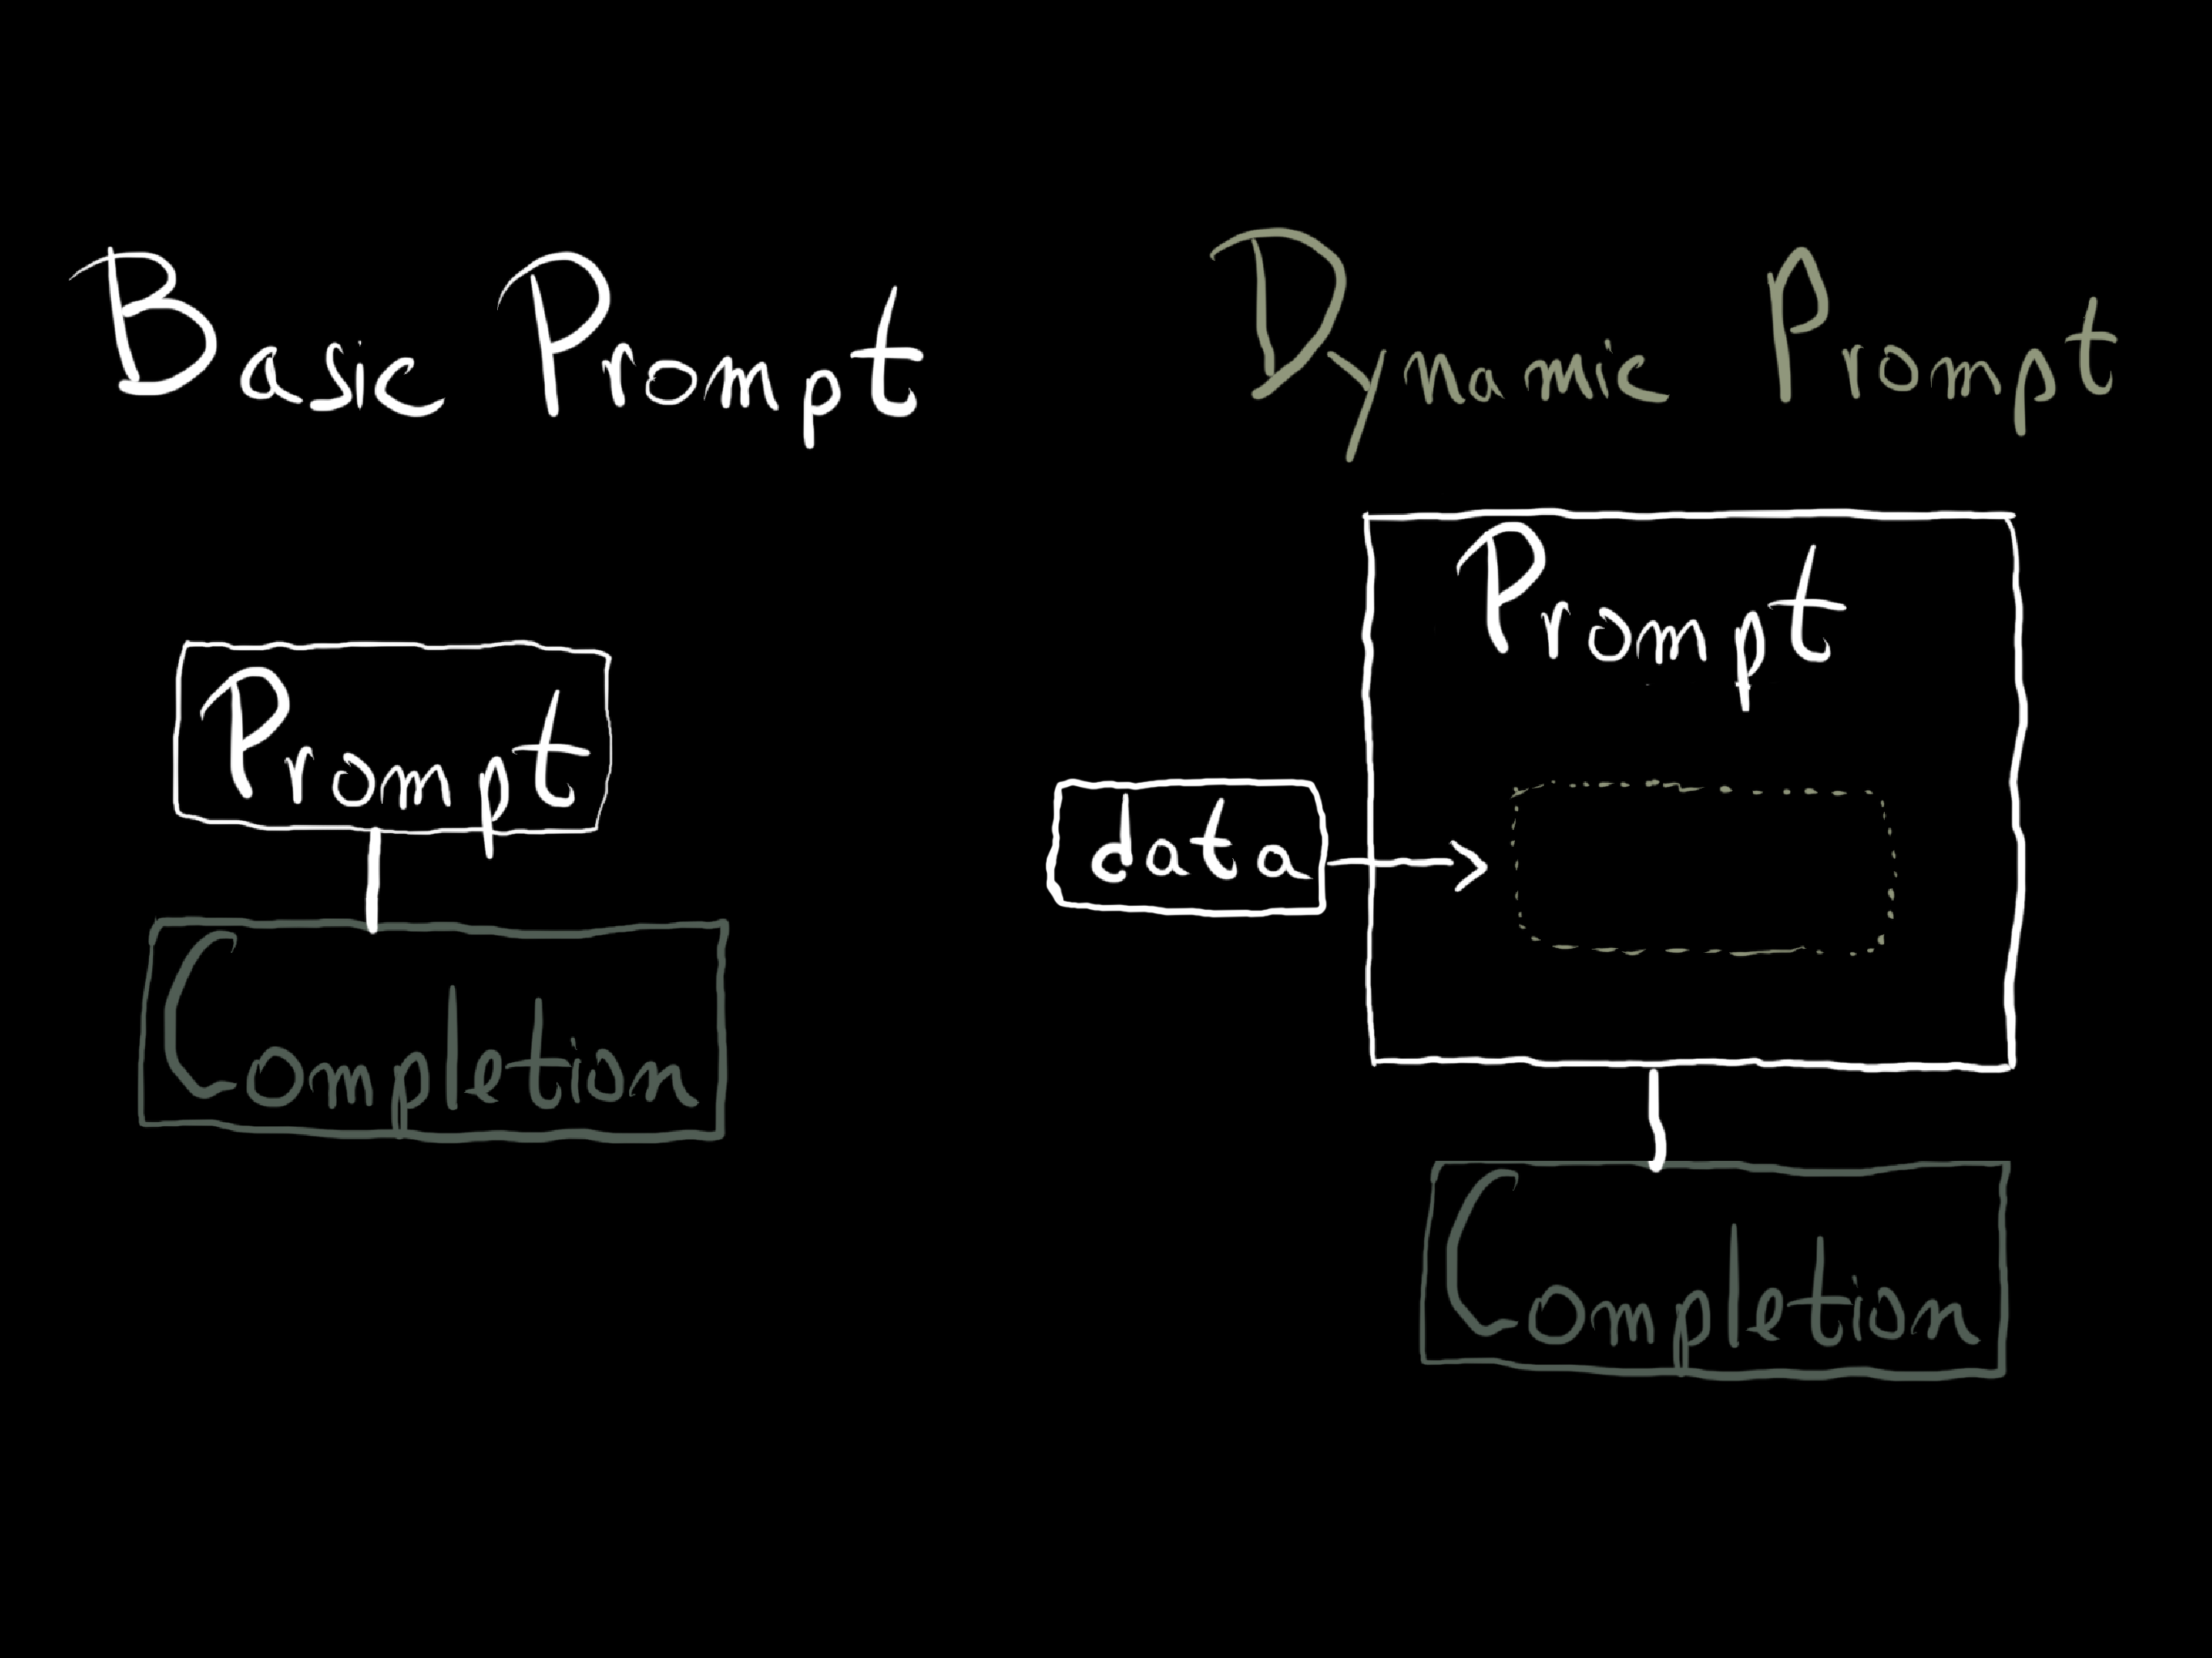 Basic Prompt
Prompt
Completion
Dynamic Prompt
Prompt
data
Completion